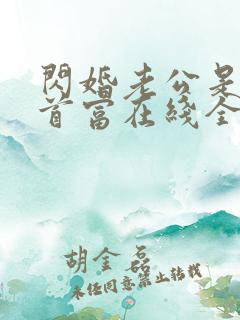 閃婚老公是
首富在綫全
胡金磊
未经同意禁止转载